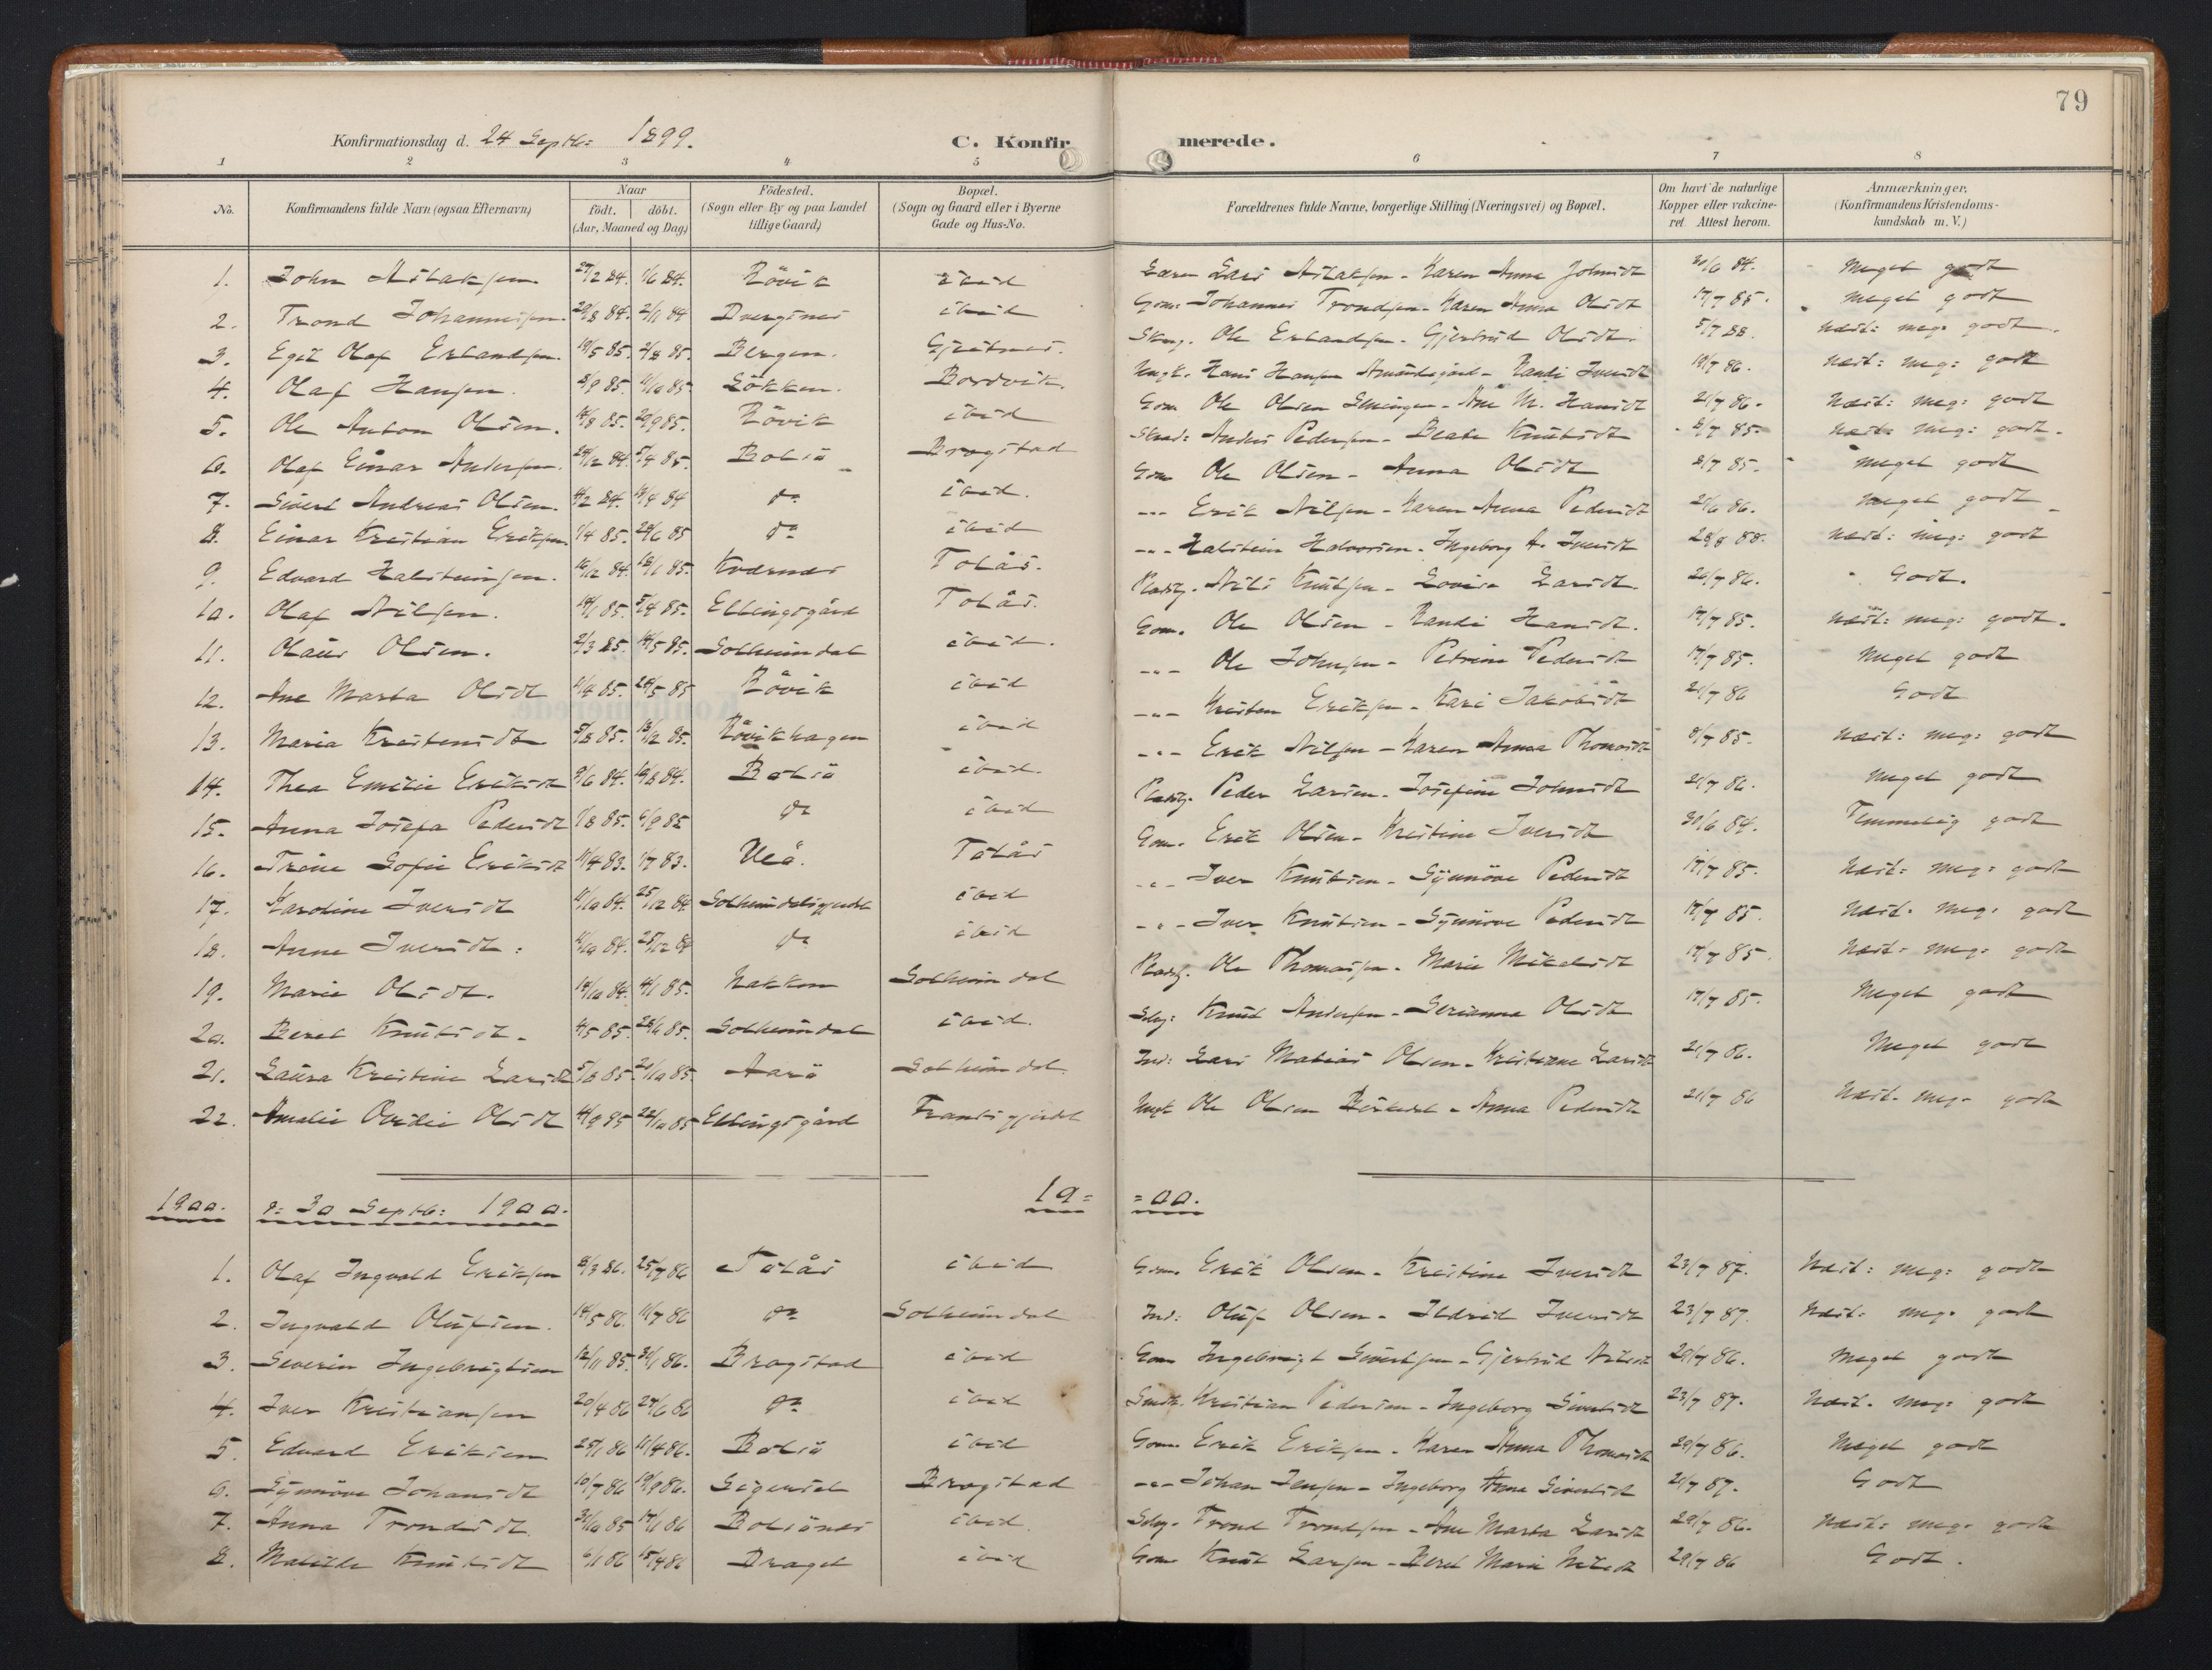 79
Konfirmationsdag d. 24 Septb: 1899. C. Konfirmerede.
1 2 3 4 5 6 7 8
No. Konfirmandens fulde Navn (ogsaa Efternavn) Naar födt. döbt. (Aar, Maaned og Dag) Födested. (Sogn eller By og paa Landet tillige Gaard) Bopæl. (Sogn og Gaard eller i Byerne Gade og Hus-No. Forældrenes fulde Navne, borgerlige Stilling (Næringsvei) og Bopæl. Om havt de naturlige Kopper eller vakcineret Attest herom. Anmærkninger. (Konfirmandens Kristendomskundskab m. V.)
1. John Aslaksen 27/2 84. 1/6 84. Rövik ibid Lars Aslaksen - Karen Anna Johnsdt 30/6 84. Meget godt
2. Trond Johannessen. 29/8 84. 2/11 84 Dvergsnes ibid Gom: Johannes Trondsen - Karen Anna Olsdt 17/7 85. Meget godt
3. Egil Olaf Erlandsen. 19/5 85. 2/8 85. Bergen. Gjeitnes. Ole Erlandsen - Gjertrud Olsdt. 5/7 88. Næst: meg: godt.
4. Olaf Hansen. 8/9 85. 11/10 85. Lökken. Bordvik. Ungk. Hans Hansen - Randi Iversdt 19/7 86. Næst: meg: godt
5. Ole Anton Olsen. 14/8 85. 20/9 85. Rövik ibid Gom Ole Olsen - Ane M. Hansdt 21/7 86. Næst: meg: godt
6. Olaf Einar Andersen. 29/12 84. 5/4 85. Bolsö Drogstad Anders Pedersen - Beate Knutsdt 8/7 85. Næst: meg: godt.
7. Sivert Andreas Olsen. 4/2 84. 13/4 84 do ibid. Gom Ole Olsen - Anna Olsdt 8/7 85. Meget godt
8. Einar Kristian Eriksen 1/4 85. 29/6 85 do ibid -"- Erik Nilsen - Karen Anna Pedersdt 21/6 86. Meget godt
9. Edvard Halsteinsen. 16/12 84. 18/1 85. Kvernes Tolås. -"- Halstein Halvorsen - Ingeborg A. Iversdt 28/8 88. Næst: meg: godt
10. Olaf Nilsen. 14/1 85. 5/4 85. Ellingsgård Tolås. Pladsg. Nils Knutsen - Lovise Larsdt 26/7 86. Godt.
11. Olaus Olsen. 2/3 85. 14/5 85. Solheimdal ibid. Gom. Ole Olsen - Randi Hansdt. 17/7 85. Næst: meg: godt.
12. Ane Marta Olsdt 11/4 85. 28/5 85 Rövik ibid -"- Ole Johnsen - Petrine Pedersdt 17/7 85. Meget godt
13. Maria Kristensdt 5/8 85. 13/12 85. Rövikhagen ibid -"- Kristen Eriksen - Kari Jakobsdt 21/7 86 Godt
14. Thea Emilie Eriksdt 9/6 84. 10/8 84. Bolsö ibid. -"- Erik Nilsen - Karen Anna Thomasdt 8/7 85. Næst: meg: godt
15. Anna Josefa Pedersdt 7/8 85. 6/9 85 do ibid Pladsg. Peder Larsen - Josefine Johnsdt 21/7 86. Meget godt
16. Trine Sofie Eriksdt 11/4 83. 1/7 83. Veö. Tolås Gom. Erik Olsen - Kristine Iversdt 30/6 84. Temmelig godt
17. Karoline Iversdt 11/10 84. 25/12 84. Solheimdalsgjerdet ibid -"- Iver Knutsen - Synnöve Pedersdt 17/7 85. Næst: meg: godt
18. Anne Iversdt: 11/10 84. 25/12 84 do ibid -"- Iver Knutsen - Synnöve Pedersdt 17/7 85. Næst: meg: godt
19. Marie Olsdt. 14/10 84. 4/1 85. Nakken Solheimdal Pladsg. Ole Thomassen - Marie Mikalsdt 17/7 85. Næst: meg: godt
20. Beret Knutsdt. 4/5 85. 28/6 85. Solheimdal ibid. Selvej: Knut Andersen - Serianna Olsdt 17/7 85. Meget godt
21. Laura Kristine Larsdt 5/8 85. 21/10 85. Aarö Solheimdal Ind: Lars Matias Olsen - Kristiane Larsdt 21/7 86. Meget godt
22. Amalie Ovidie Olsdt 4/9 85 22/11 85 Ellingsgård Frantsgjerdet Ungk Ole Olsen - Anna Pedersdt 21/7 86 Næst. meg. godt
1900. d: 30 Septb: 1900. 19= =00.
1. Olaf Ingvald Eriksen 8/3 86. 25/7 86 Tolås ibid Gom. Erik Olsen - Kristine Iversdt 23/7 87. Næst: meg: godt
2. Ingvald Olufsen. 14/5 86. 11/7 86 do Solheimdal Ind: Oluf Olsen - Ildrid Iversdt 23/7 87. Næst: meg: godt
3. Severin Ingebrigtsen 12/11 85. 31/1 86. Drogstad ibid Gom Ingebrigt Sivertsen - Gjertrud Nilsdt 29/7 86. Meget godt
4. Iver Kristiansen 20/4 86 27/6 86 do ibid Smed. Kristian Pedersen - Ingeborg Sivertsdt 23/7 87. Næst. meg: godt
5. Edvard Eriksen 25/1 86 11/4 86. Bolsö ibid Gom. Erik Eriksen - Karen Anna Thomasdt 29/7 86. Meget godt
6. Synnöve Johansdt 10/7 86 19/9 86. Sigerset Drogstad -"- Johan Jensen - Ingeborg Anna Sivertsdt 21/7 87. Godt
7. Anna Trondsdt. 31/10 85 17/1 86 Bolsönes ibid. Selvej. Trond Trondsen - Ane Marta Larsdt 29/7 86. Næst: meg. godt
8. Matilde Knutsdt 6/1 86 15/4 86 Draget ibid Gom Knut Larsen - Beret Marie Nilsdt 29/7 86 Godt.